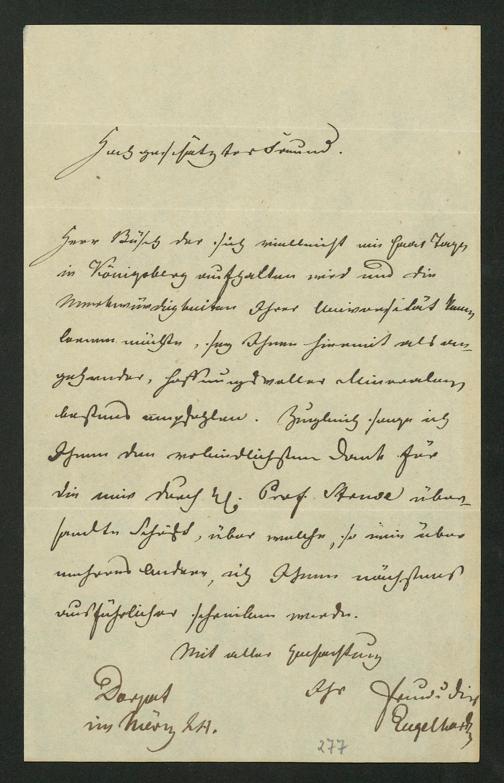 Hochgeschätzter Freund.
Herr Büsch der sich vielleicht ein Paar Tage
in Königsberg aufhalten wird und die
Merkwürdigkeiten Ihrer Universität kennen
lernen möchte, sey Ihnen hiermit als an-
gehender, hoffnungsvoller Mineralog
bestens empfohlen. Zugleich sage ich
Ihnen den verbindlichsten Dank für
die mir durch H. Prof. Struve über-
sandte Schrift, über welche, so wie über
mehreres Andere, ich Ihnen nächstens
ausführlicher schreiben werde.
Mit aller Hochachtung
Ihr
Engelhardt
Dorpat
im März 24.
277